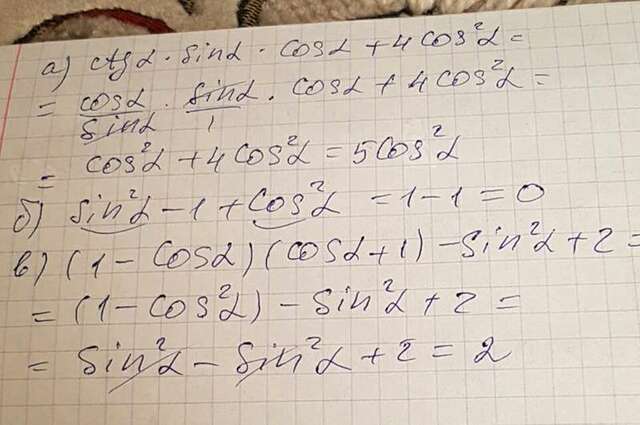 а) ctgα · sinα · cosα + 4cos²α =
= cosα/sinα · sinα/1 · cosα + 4cos²α =
= cos²α + 4cos²α = 5cos²α
б) sin²α - 1 + cos²α = 1 - 1 = 0
в) (1 - cosα)(cosα + 1) - sin²α + 2 =
= (1 - cos²α) - sin²α + 2 =
= sin²α - sin²α + 2 = 2